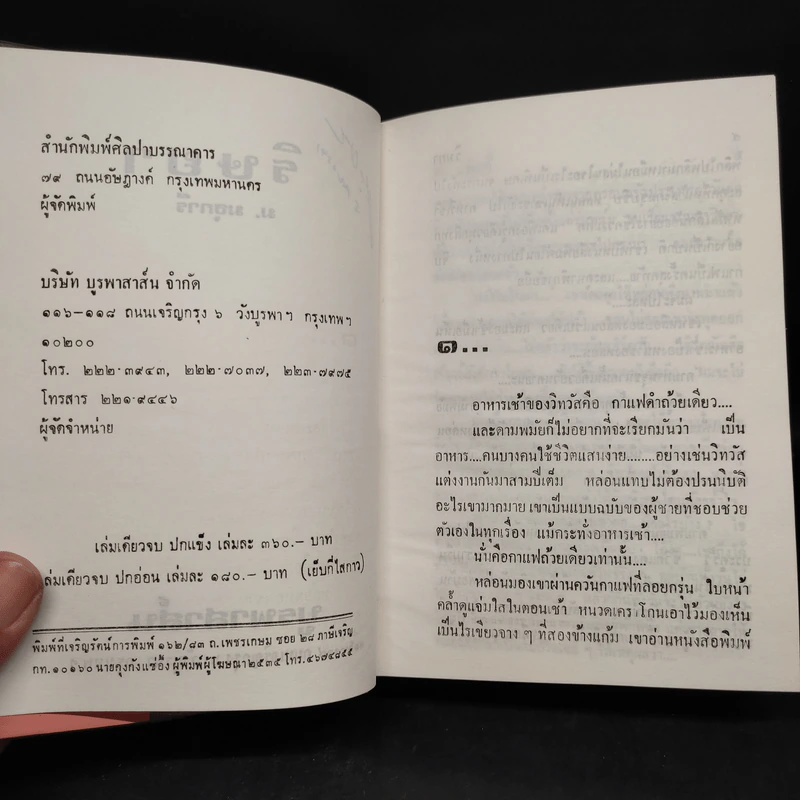 สำนักพิมพ์ศิลปาบรรณาคาร
๗๙ ถนนอัษฎางค์ กรุงเทพมหานคร
ผู้จัดพิมพ์
บริษัท บูรพาสาส์น จำกัด
๑๑๖-๑๑๘ ถนนเจริญกรุง ๖ วังบูรพาฯ กรุงเทพฯ
๑๐๒๐๐
โทร. ๒๒๒-๓๙๔๓, ๒๒๒-๗๐๓๗, ๒๒๓-๗๙๗๕
โทรสาร ๒๒๑-๙๔๔๖
ผู้จัดจำหน่าย
เล่มเดียวจบ ปกแข็ง เล่มละ ๓๖๐.- บาท
เล่มเดียวจบ ปกอ่อน เล่มละ ๑๘๐.- บาท (เย็บกี่ไสกาว)
พิมพ์ที่เจริญรัตน์การพิมพ์ ๑๖๒/๘๓ ถ.เพชรเกษม ซอย ๒๘ ภาษีเจริญ
กท.๑๐๑๖๐ นายคุงกังแซ่อึ้ง ผู้พิมพ์ผู้โฆษณา ๒๕๓๕ โทร.๔๖๗๔๘๕๕
๑...
อาหารเช้าของวิทวัสคือ กาแฟดำถ้วยเดียว....
และดามพมัยก็ไม่อยากที่จะเรียกมันว่า เป็น
อาหาร....คนบางคนใช้ชีวิตแสนง่าย........อย่างเช่นวิทวัส
แต่งงานกันมาสามปีเต็ม หล่อนแทบไม่ต้องปรนนิบัติ
อะไรเขามากมาย เขาเป็นแบบฉบับของผู้ชายที่ชอบช่วย
ตัวเองในทุกเรื่อง แม้กระทั่งอาหารเช้า....
นั่นคือกาแฟถ้วยเดียวเท่านั้น....
หล่อนมองเขาผ่านควันกาแฟที่ลอยกรุ่น ใบหน้า
คล้ำดูแจ่มใสในตอนเช้า หนวดเคราโกนเอาไว้มองเห็น
เป็นไรเขียวจาง ๆ ที่สองข้างแก้ม เขาอ่านหนังสือพิมพ์